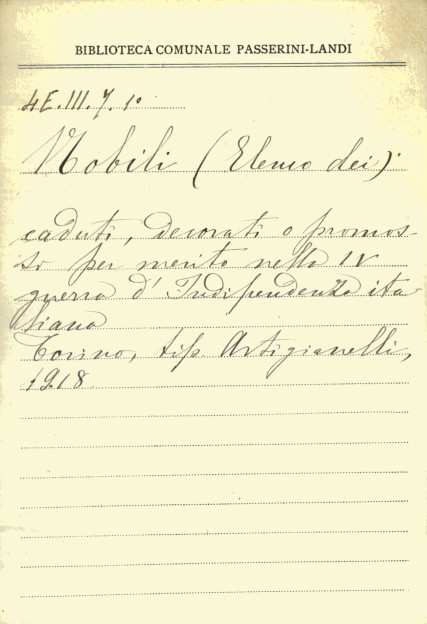 BIBLIOTECA COMUNALE PASSERINI-LANDI
4E.III.7.1°
Nobili (Elenco dei)
caduti, decorati o promos-
si per merito nella IV
guerra d'Indipendenza ita-
liana
Torino, tip. Artigianelli,
1918.